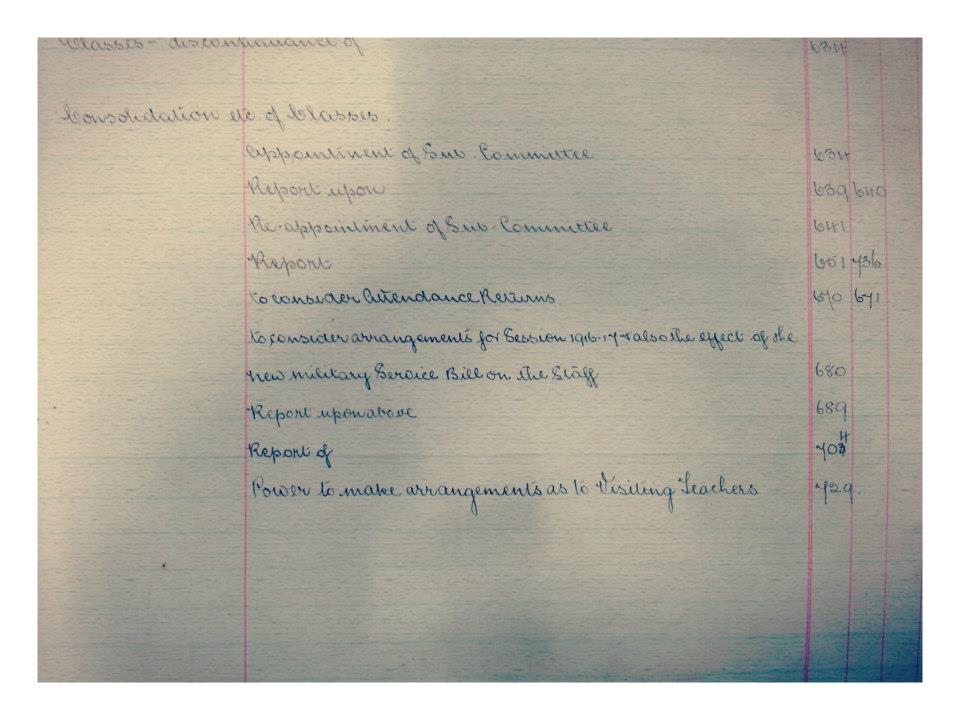 Classes - discontinuance of 634
Consolidation etc. of Classes.
Appointment of Sub-Committee 634
Report upon 639 640
Re-appointment of Sub-Committee 641
Report 651 736
to consider Attendance Returns 670 671
to consider arrangements for Session 1916-17 & also the effect of the
new military Service Bill on the Staff 680
Report upon above 689
Report of 704
Power to make arrangements as to Visiting Teachers 729.